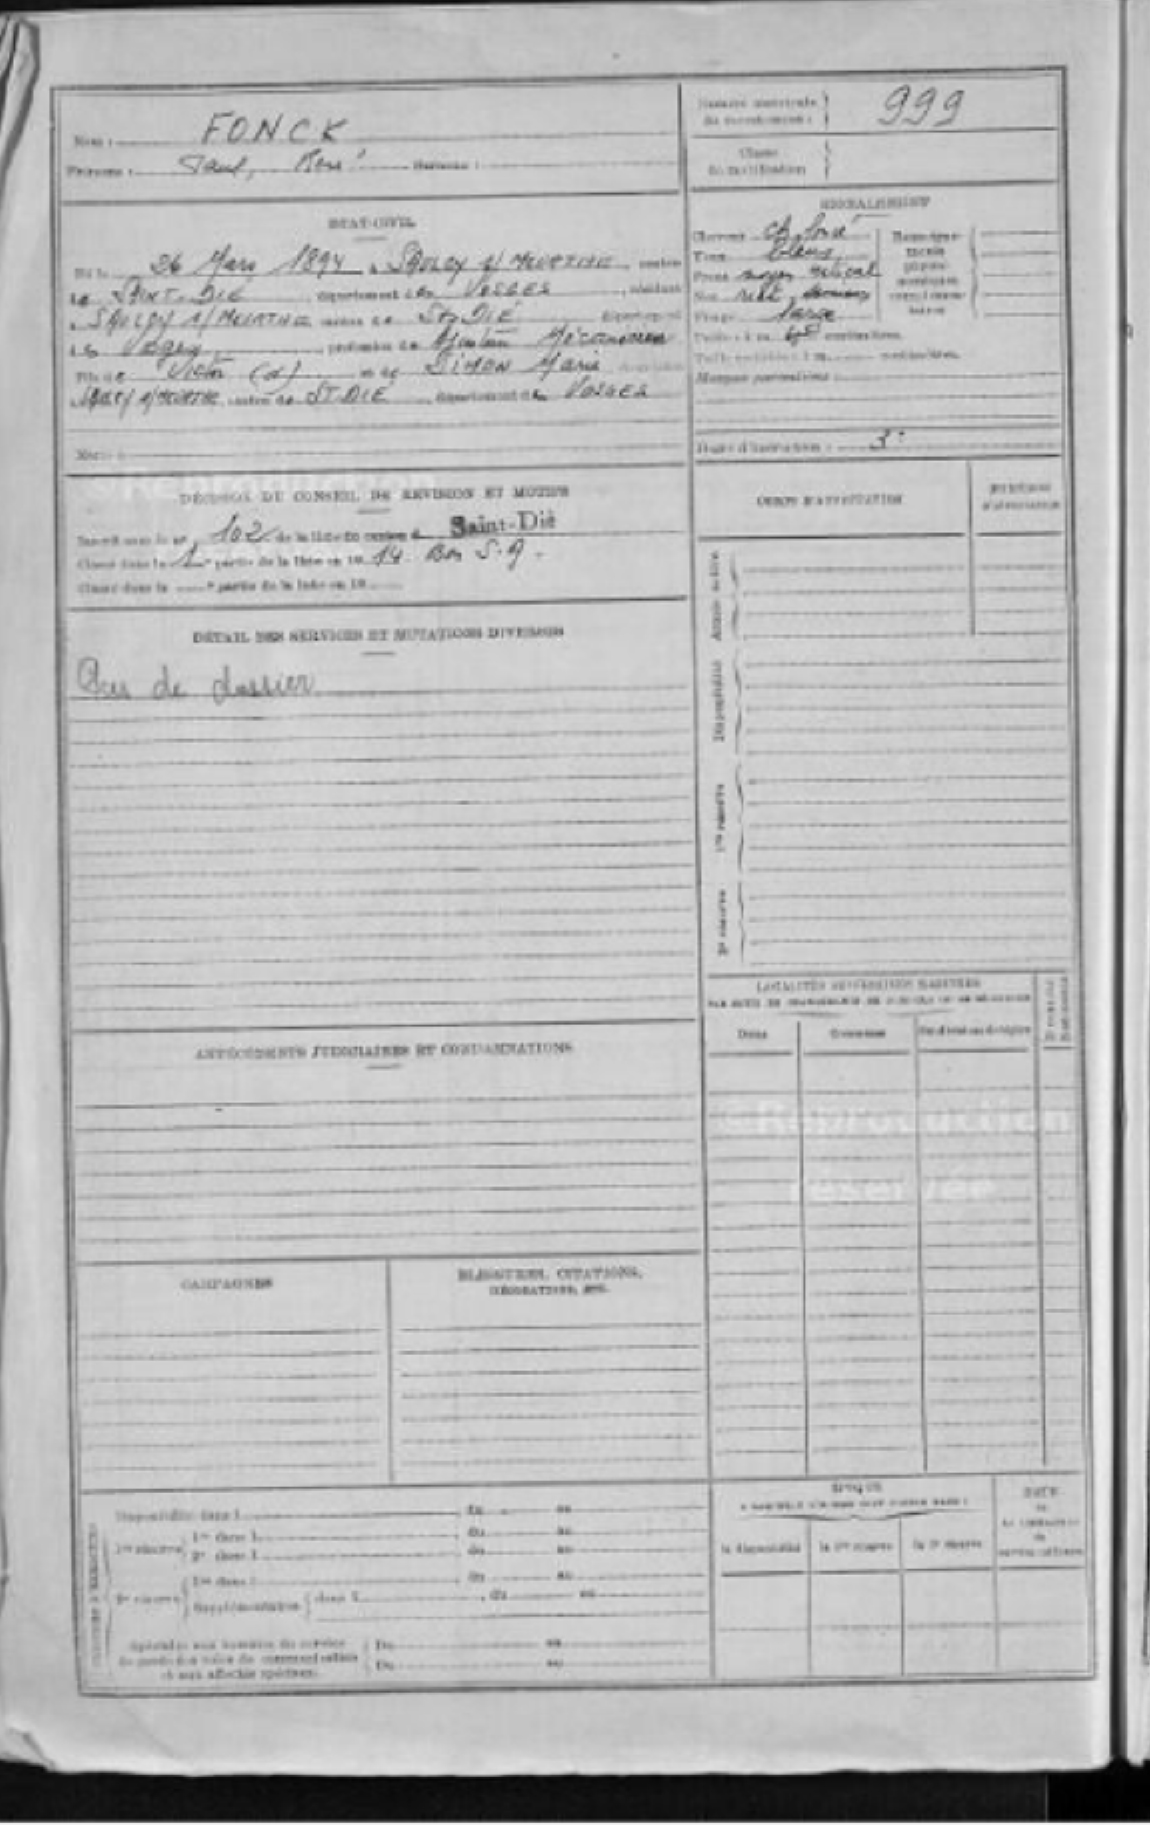 Nom : FONCK
Prénoms : Paul, René Surnoms :
Numéro matricule du recrutement : 999
Classe de mobilisation
ÉTAT-CIVIL
Né le 26 Mars 1894, à SAULCY s/ MEURTHE, canton
de SAINT-DIÉ, département des VOSGES, résidant
à SAULCY s/ MEURTHE canton de ST-DIÉ département
des Vosges profession de Ajusteur Mécanicien
Fils de Victor (d) et de SIMON Marie
à SAULCY s/MEURTHE canton de ST DIÉ, département des VOSGES
SIGNALEMENT
Cheveux ch. foncé
Yeux bleus
Front moyen vertical
Nez rect.
Visage large
Taille : 1 m. centimètres.
Taille rectifiée : 1 m. centimètres.
Marques particulières :
Degré d'instruction : 3
DÉCISION DU CONSEIL DE RÉVISION ET MOTIFS
Inscrit sous le n° 102 de la liste du canton d Saint-Dié
Classé dans la 1re partie de la liste en 19 14 Bon S. A.
Classé dans la e partie de la liste en 19
CORPS D'AFFECTATION
DÉTAIL DES SERVICES ET MUTATIONS DIVERSES
Pas de dossier
Armée active
Disponibilité
1re réserve
2e réserve
LOCALITÉS SUCCESSIVES HABITÉES
PAR SUITE DE CHANGEMENTS DE DOMICILE OU DE RÉSIDENCE
Dates
Communes
Subdivisions de région
ANTÉCÉDENTS JUDICIAIRES ET CONDAMNATIONS
©Reproduction
réservée
CAMPAGNES
BLESSURES, CITATIONS,
DÉCORATIONS, ETC.
Disponibilité dans l , du au
1re réserve 1re dans l , du au
2e dans l , du au
2e réserve 1re dans l , du au
Supplémentaire dans l , du au
Spéciales aux hommes du service
de garde des voies de communication
et aux affectés spéciaux
Du au
Du au
ÉPOQUE
la disponibilité
la 1re réserve
la 2e réserve
DATE